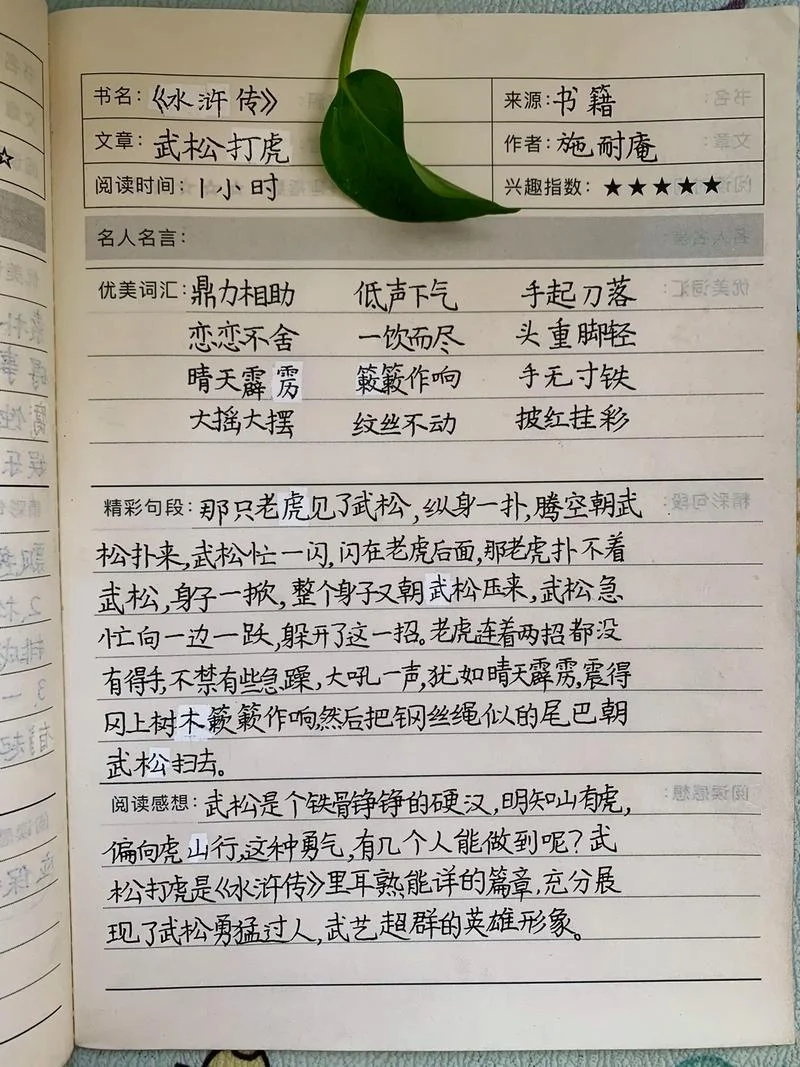 书名：《水浒传》 来源：书籍
文章：武松打虎 作者：施耐庵
阅读时间：1小时 兴趣指数：★★★★★
名人名言：
优美词汇：鼎力相助 低声下气 手起刀落
恋恋不舍 一饮而尽 头重脚轻
晴天霹雳 簌簌作响 手无寸铁
大摇大摆 纹丝不动 披红挂彩
精彩句段：那只老虎见了武松，纵身一扑，腾空朝武
松扑来，武松忙一闪，闪在老虎后面，那老虎扑不着
武松，身子一掀，整个身子又朝武松压来，武松急
忙向一边一跃，躲开了这一招。老虎连着两招都没
有得手，不禁有些急躁，大吼一声，犹如晴天霹雳，震得
冈上树木簌簌作响，然后把钢丝绳似的尾巴朝
武松扫去。
阅读感想：武松是个铁骨铮铮的硬汉，明知山有虎，
偏向虎山行，这种勇气，有几个人能做到呢？武
松打虎是《水浒传》里耳熟能详的篇章，充分展
现了武松勇猛过人，武艺超群的英雄形象。